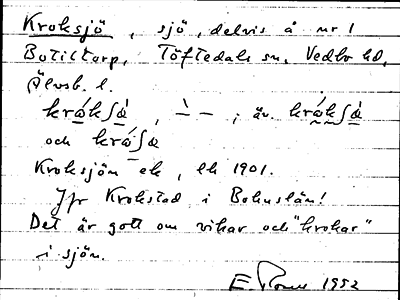 Kroksjö, sjö, delvis å nr 1
Botiltorp, Töftedals sn, Vedbo hd,
Älvsb. l.
och
Kroksjön ek, lk 1901.
Jfr Krokstad i Bohuslän!
Det är gott om vikar och "krokar"
i sjön.
E 1952